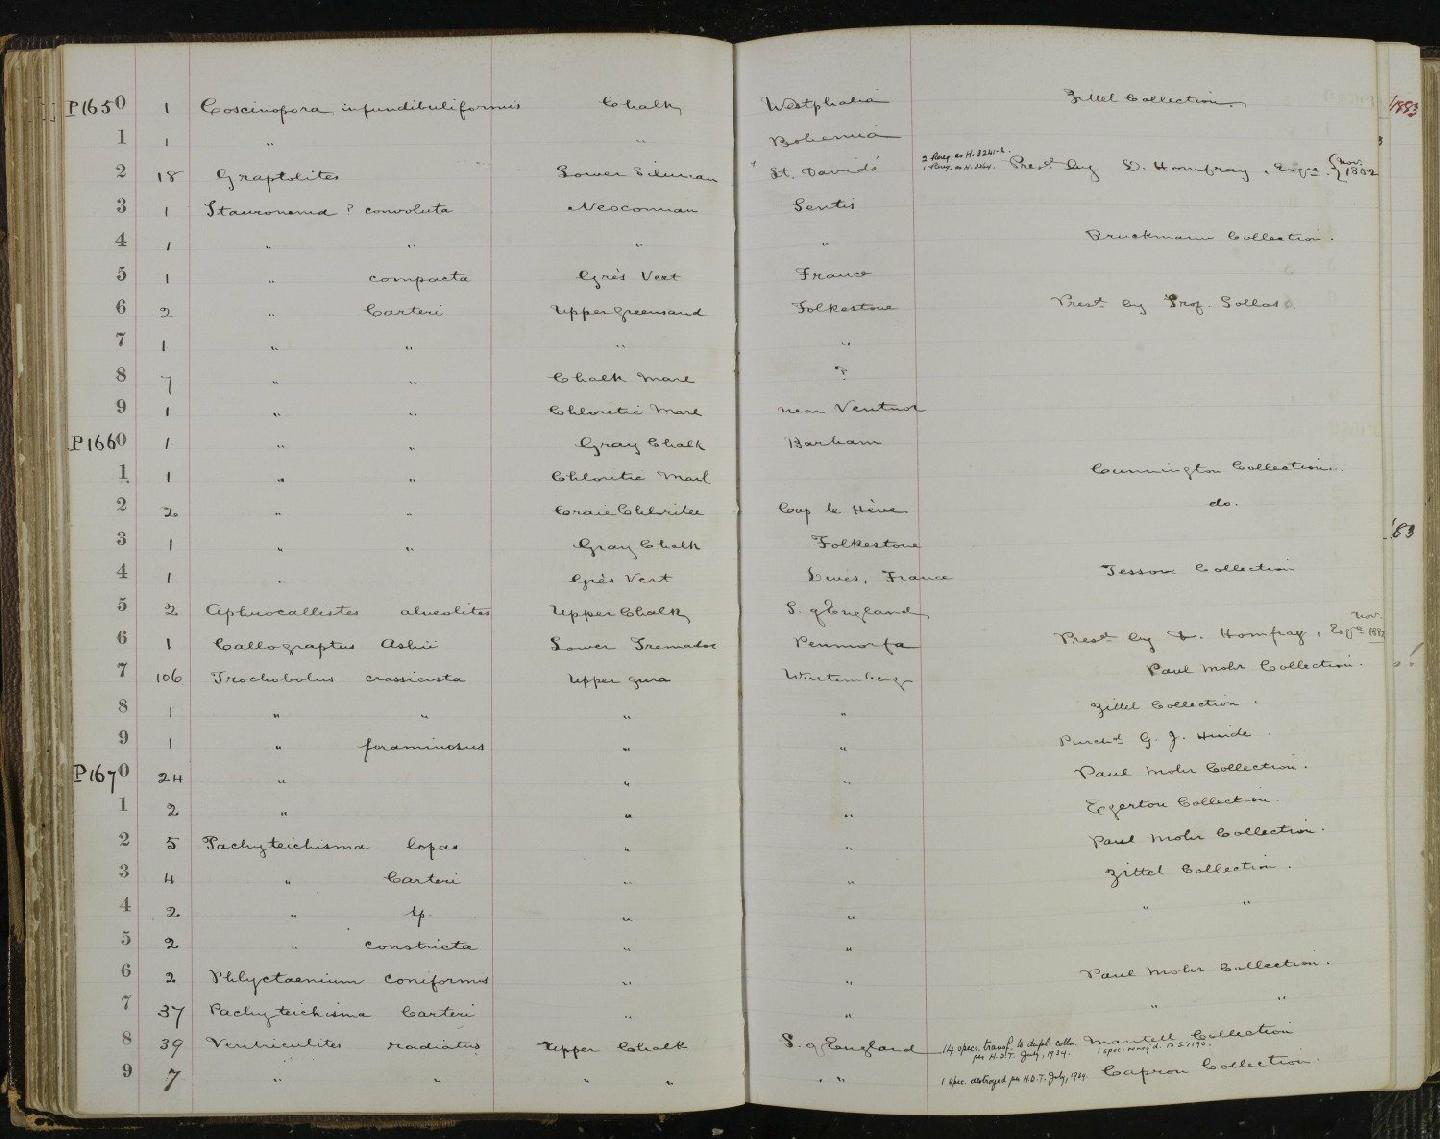 P1650 1 Coscinopora infundibuliformis Chalk Westphalia Zittel Collection
1 1 " " Bohemia
2 18 Graptolites Lower Silurian St. David's 2 Rereg. as H. 3241-2. 1 Rereg. as H. Presd. by D. Homfray, Esqre. Nov. 1882
3 1 Stauronema ? convoluta Neocomian Sentis
4 1 " " " " Bruckmann Collection.
5 1 " compacta Grès Vert France
6 2 " Carteri Upper Greensand Folkestone Presd. by Prof. Sollas
7 1 " " " "
8 7 " " Chalk Marl ?
9 1 " " Chloritic Marl near Ventnor
P1660 1 " " Gray Chalk Barham
1 1 " " Chloritic Marl Cunnington Collection.
2 2 " " Craie Chloritée Cap la Hève do.
3 1 " " Gray Chalk Folkestone
4 1 " Grès Vert Dives, France Tesson Collection
5 2 Aphrocallistes alveolites Upper Chalk S. of England
6 1 Callograptus Ashii Lower Tremadoc Penmorfa Presd. by D. Homfray, Esqre. Nov. 1882
7 106 Trochobolus crassicosta Upper Jura Wurtemberg Paul Mohr Collection.
8 1 " " " " Zittel Collection.
9 1 " foraminosus " " Purchd. G. J. Hinde
P1670 24 " " " Paul Mohr Collection.
1 2 " " " Egerton Collection.
2 5 Pachyteichisma lopas " " Paul Mohr Collection.
3 4 " Carteri " " Zittel Collection.
4 2 " sp. " " " "
5 2 " constricta " "
6 2 Phlyctaenium coniformis " " Paul Mohr Collection.
7 37 Pachyteichisma Carteri " " " "
8 39 Ventriculites radiatus Upper Chalk S. of England 14 spec. transf. to dupl. colln. per H.D.T. July, 1934. Mantell Collection
9 7 " " " " " " 1 spec. destroyed per H.D.T. July, 1934. Capron Collection.
1883
'83